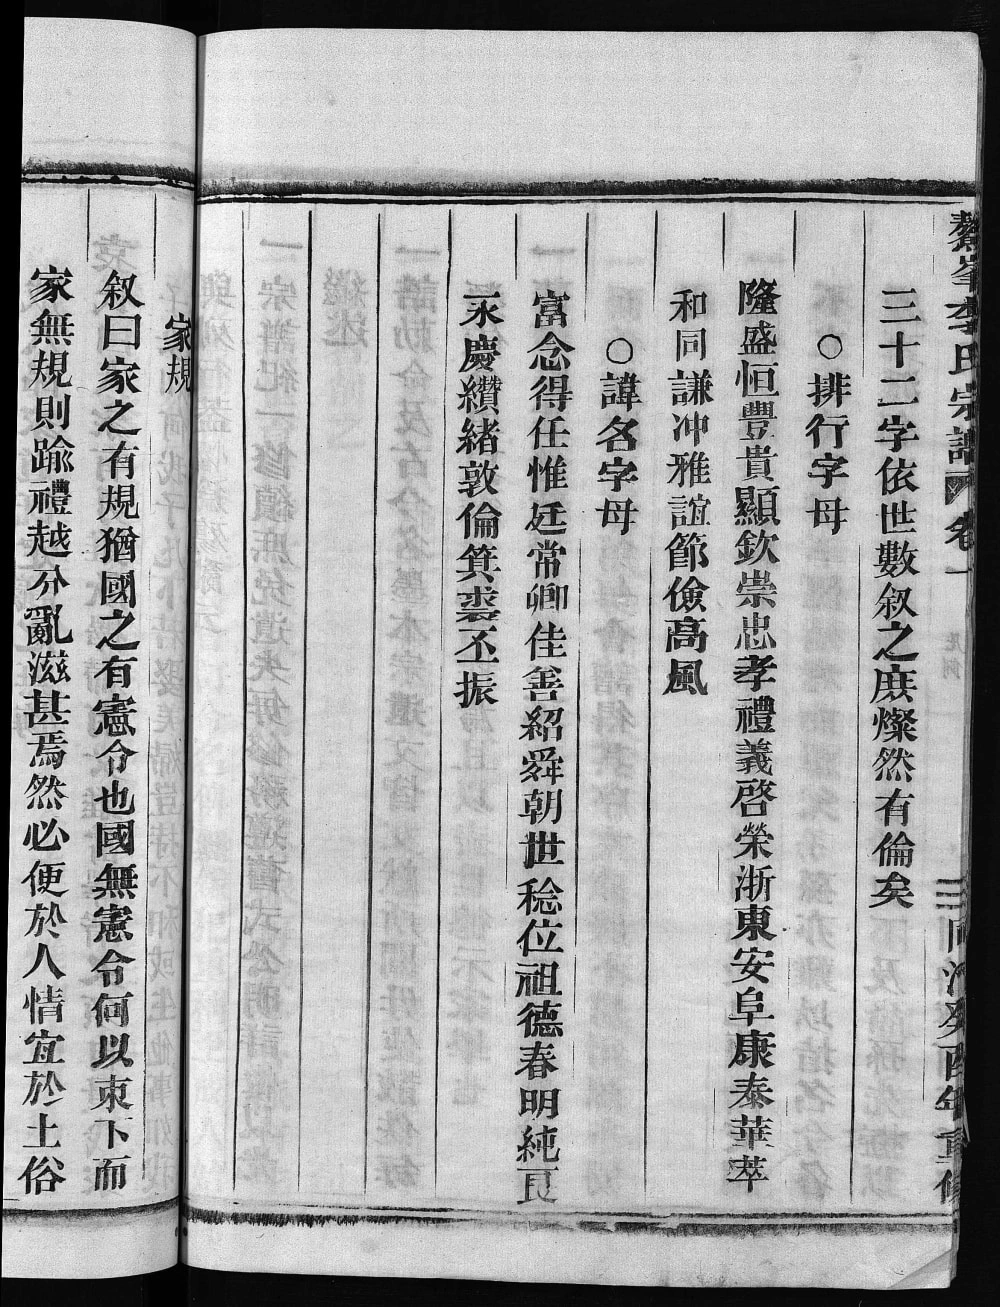 鰲峯李氏宗譜 卷一 凡例 三 同治癸酉年重修
三十二字依世數叙之庶燦然有倫矣
○排行字母
隆盛恒豐貴顯欽崇忠孝禮義啓榮浙東安阜康泰華萃
和同謙冲雅誼節儉高風
○諱名字母
富念得任惟廷常卿佳善紹舜朝世稔位祖德春明純良
永慶纘緒敦倫箕裘丕振
家規
叙曰家之有規猶國之有憲令也國無憲令何以束下而
家無規則踰禮越分亂滋甚焉然必便於人情宜於土俗